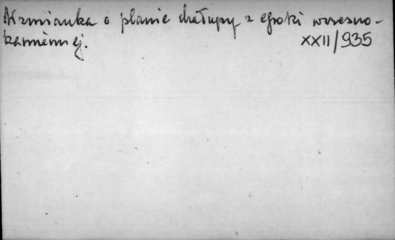 Wzmianka o planie chałupy z epoki wczesno-
kamiennej.
XXII/935